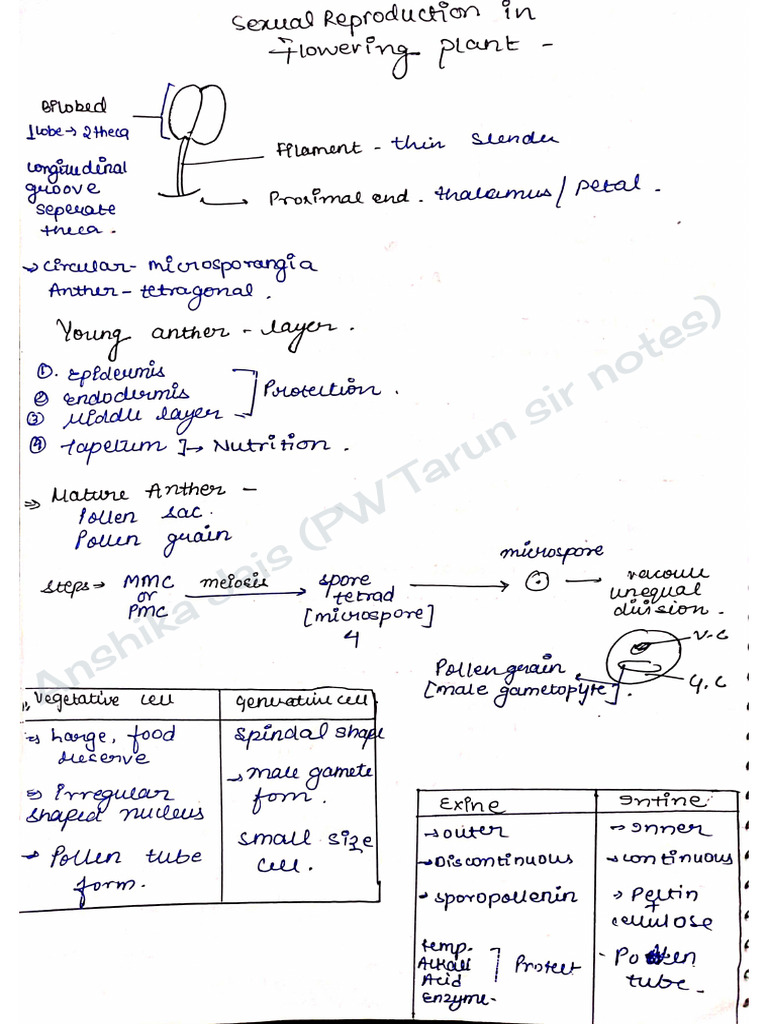 Sexual Reproduction in
Flowering plant -
Bilobed
1 lobe → 2 theca
Longitudinal
groove
seperate
theca.
Filament - thin slender
Proximal end. thalamus / Petal.
→ circular - microsporangia
Anther - tetragonal.
Young anther - layer.
①. Epidermis
② Endodermis
③ Middle layer
] Protection.
④ Tapetum ]→ Nutrition.
⇒ Mature Anther -
Pollen sac.
Pollen grain
Steps → MMC
or
PMC
meiosis
spore
tetrad
[microspore]
4
microspore
vacoule
unequal
division.
V.C
G.C
Pollen grain
[male gametopyte].
Vegetative cell
Large, food
reserve
⇒ Irregular
shaped nucleus
→ Pollen tube
form.
Generative cell
spindal shape
→ male gamete
form.
small size
cell.
Exine
→ outer
→ Discontinuous
→ sporopollenin
temp.
Alkali
Acid
Enzyme.
] Protect
Intine
→ Inner
→ continuous
→ Pectin
+
cellulose
- Pollen
tube.
Anshika Jais (PW Tarun sir notes)